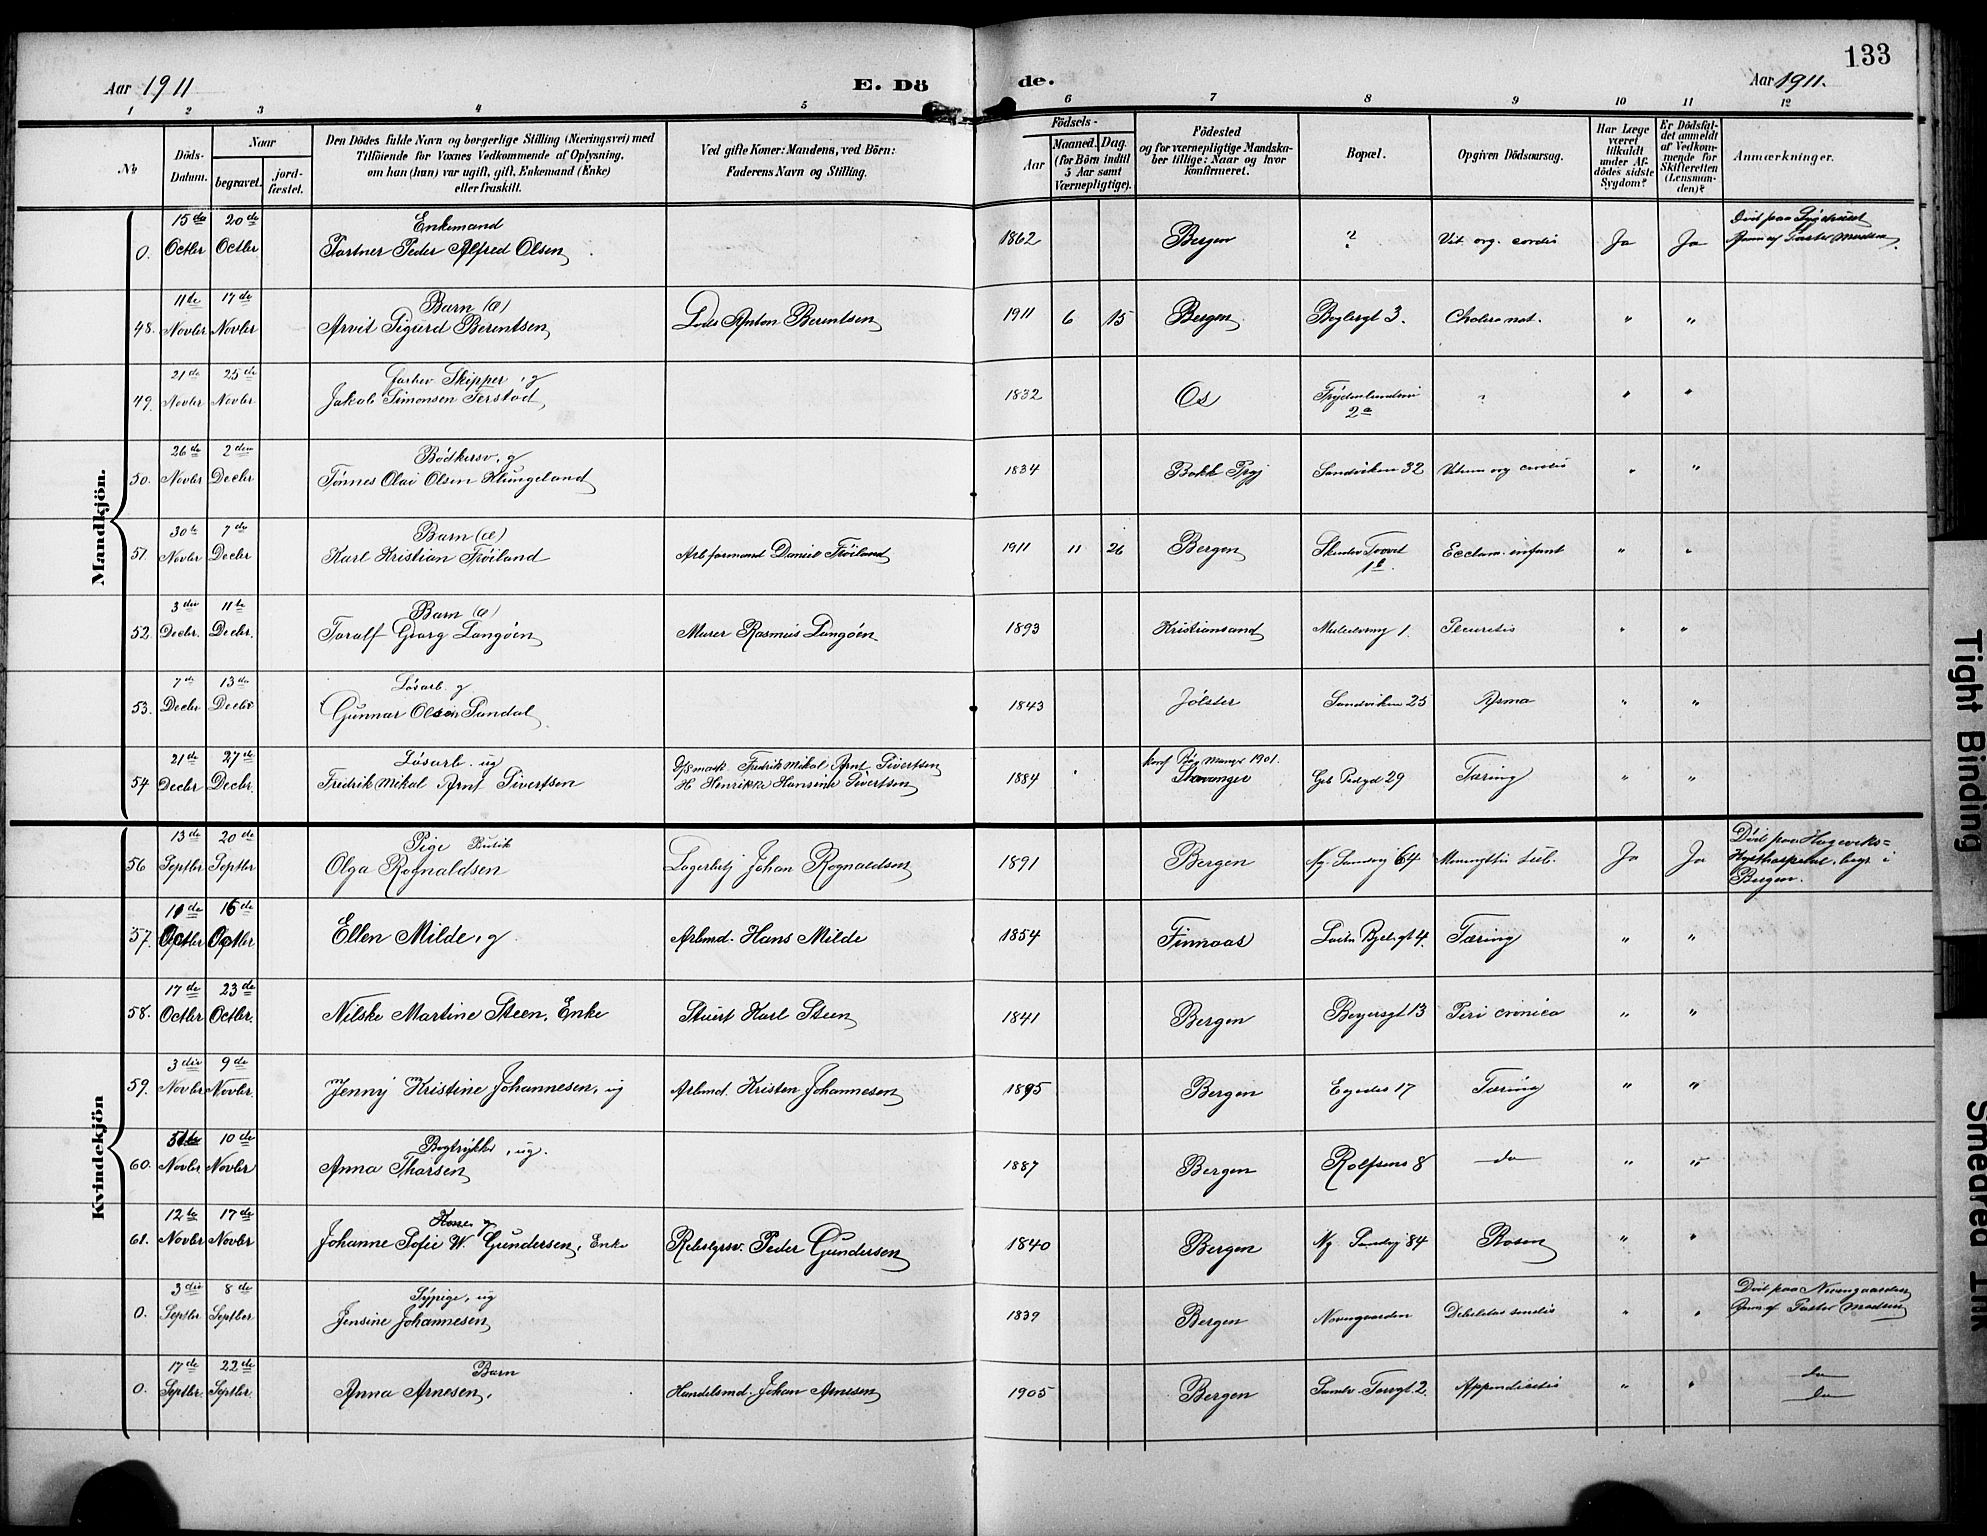 133
Aar 1911
E. Dö de.
Aar 1911.
1 2 3 4 5 6 7 8 9 10 11 12
No
Döds-Datum.
Naar
begravet.
jord-fæstet.
Den Dödes fulde Navn og borgerlige Stilling (Næringsvei) med
Tilföiende for Voxnes Vedkommende af Oplysning.
om han (hun) var ugift, gift, Enkemand (Enke)
eller fraskilt.
Ved gifte Koner: Mandens, ved Börn:
Faderens Navn og Stilling.
Födsels-
Aar
Maaned.
Dag.
(for Börn indtil
5 Aar samt
Værnepligtige).
Födested
og for værnepligtige Mandska-
ber tillige: Naar og hvor
konfirmeret.
Bopæl.
Opgiven Dödsaarsag.
Har Læge
været
tilkaldt
under Af-
dödes sidste
Sygdom?
Er Dödsfal-
det anmeldt
af Vedkom-
mende for
Skifteretten
(Lensman-
den)?
Anmærkninger.
Mandkjön.
0. 15de Octbr 20de Octbr Enkemand
Partner Peder Alfred Olsen 1862 Bergen ? Vit. org. cordis Ja Ja Död paa Sygehuset
Pastor Madsen
48. 11te Novbr 17de Novbr Barn (æ)
Arvit Sigurd Berentsen Lods Anton Berentsen 1911 6 15 Bergen Boglergt 3. Cholera nat. " "
49. 21de Novbr 25de Novbr Skipper, g
Jakob Simonsen Terstad, 1832 Os 2a " "
50. 26de Novbr 2den Decbr Bödkersv, g
Tønnes Olai Olsen Klungeland 1834 Sandviken 32 Vitium org cordis " "
51. 30te Novbr 7de Decbr Barn (æ)
Karl Kristian Trøiland Arb formand Daniel Trøiland 1911 11 26 Bergen 1b. Eclam. infant " "
52. 3die Decbr. 11te Decbr. Barn (æ)
Toralf Georg Langøen Murer Rasmus Langøen 1893 Kristiansand 1. " "
53. 7de Decbr 13de Decbr Løsarb. g
Gunnar Olsen Sandal 1843 Jølster Sandviken 25 " "
54 21de Decbr 27de Decbr. Løsarb. ug
Fredrik Mikal Arnt Sivertsen Fredrik Mikal Arnt Sivertsen
H Henrikke Hansine Sivertsen 1884 konf 1901.
Stavanger 29 Tæring " "
Kvindekjön
56 13de Septbr 20de Septbr Pige Butik
Olga Rognaldsen Lagerbetj Johan Rognaldsen 1891 Bergen Ny. Sandvg 64 Ja Ja Död paa Hageviks=
Kysthospital, begr i
Bergen.
57. Octbr 16de Octbr Ellen Milde, g Arbmd. Hans Milde 1854 Finnaas 4. Tæring " "
58. 17de Octbr 23de Octbr. Nilske Martine Steen, Enke Stuert Karl Steen 1841 Bergen 13 " "
59. 3die Novbr 9de Novbr. Jenny Kristine Johannesen, ug Arbmd. Kristen Johannesen 1895 Bergen Egedes 17 Tæring " "
60. Novbr 10de Novbr ug.
Anna Thorsen 1887 Bergen Rolfsens 8 do " "
61. 12te Novbr 17de Novbr
Johanne Sofie W. Gundersen, Enke Peder Gundersen 1840 Bergen Ny Sandvg 84 Rosen " "
0. 3die Septbr 8de Septbr Sypige, ug
Jensine Johannesen 1839 Bergen Nevengaarden Debilitas senilis " " Död paa Nevengaarden
Pastor Madsen
0. 17de Septbr. 22de Septbr. Barn
Anna Arnesen, Handelsmd. Johan Arnesen 1905 Bergen 2. Appendicitis " " do
do
Tight Binding
Smeared Ink